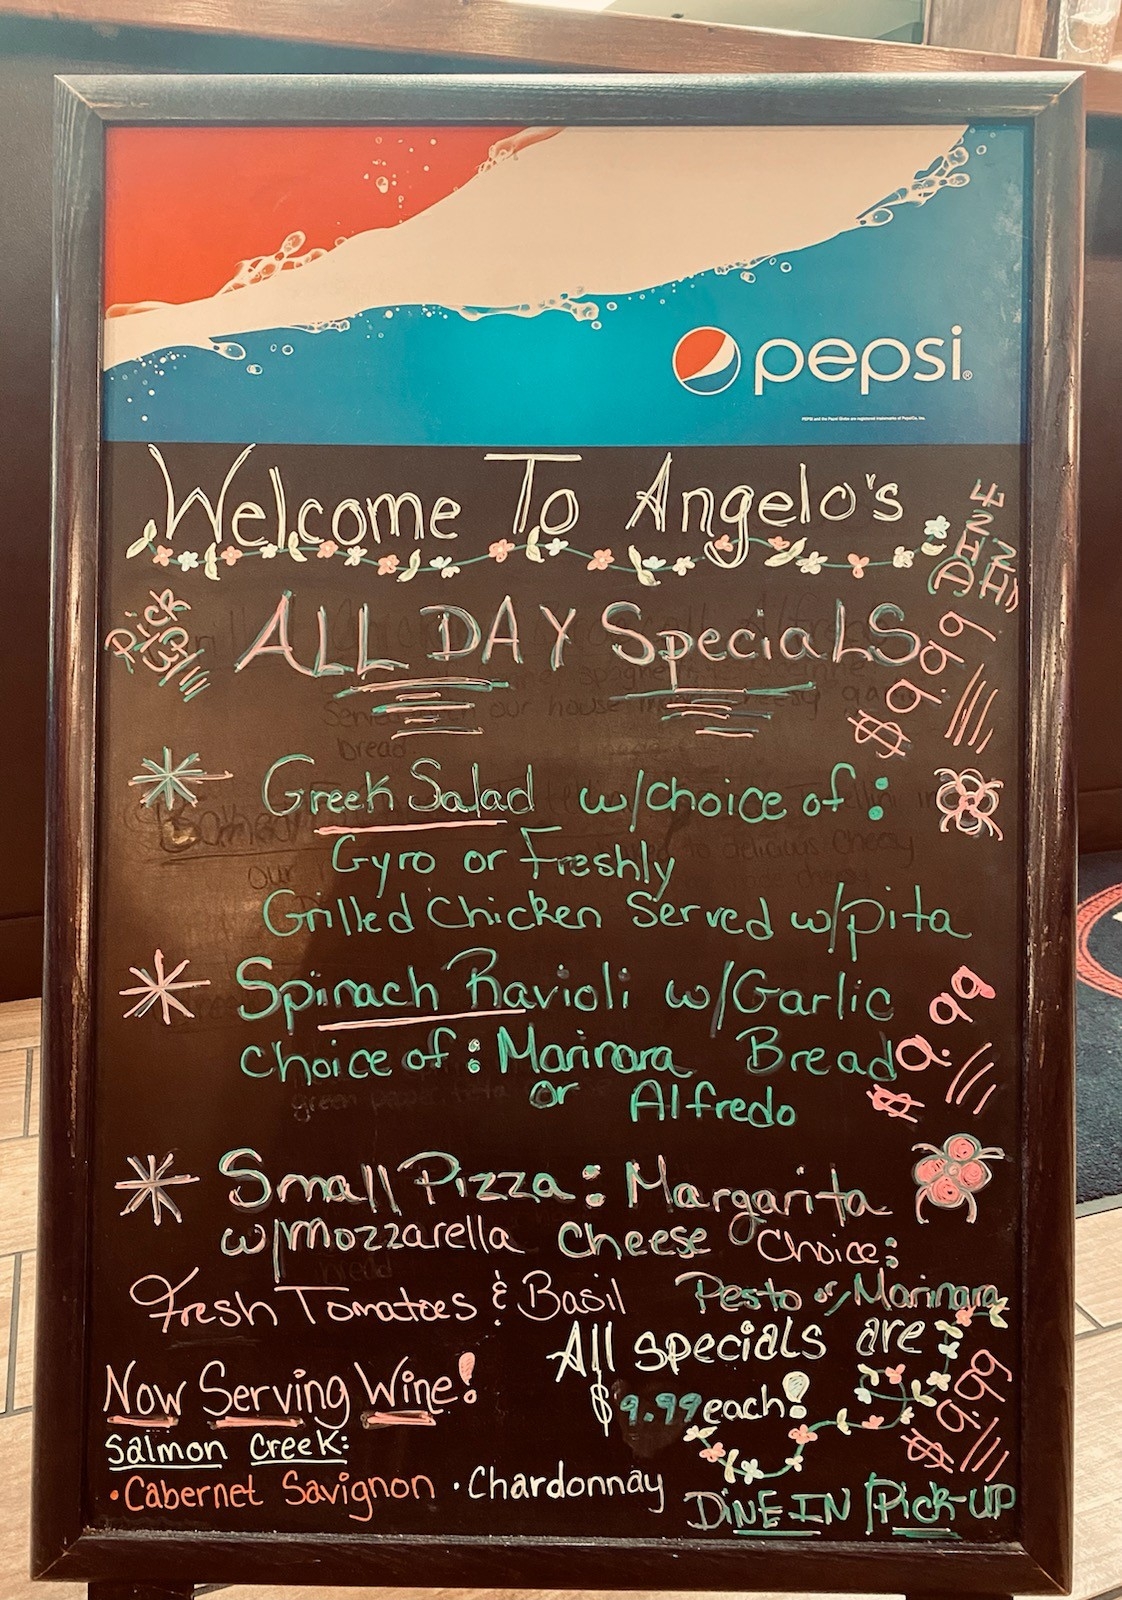 pepsi
Welcome To Angelo's
Pick
ALL DAY Specials
$9.99
Greek Salad w/choice of:
Gyro or Freshly
Grilled Chicken Served w/pita
Spinach Ravioli w/Garlic
choice of: Marinara Bread
or Alfredo
$9.99
Small Pizza: Margarita
w/Mozzarella Cheese Choice:
Fresh Tomatoes & Basil Pesto or Marinara
All specials are
$9.99 each!
$9.99
Now Serving Wine!
Salmon Creek:
• Cabernet Savignon • Chardonnay
DINE IN / Pick-UP